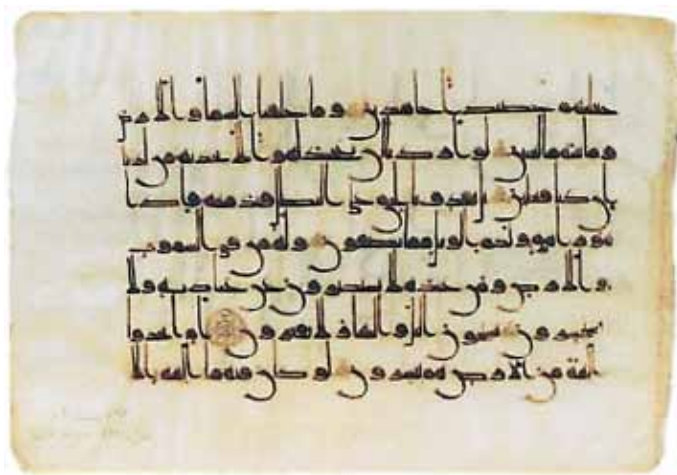 جعلنهم حصيدا خمدين وما خلقنا السما والارض
وما بينهما لعبين لو اردنا ان نتخذ لهوا لاتخذنه من لدنا
ان كنا فعلين بل نقذف بالحق على البطل فيدمغه فاذا
هو زاهق ولكم الويل مما تصفون وله من في السموت
والارض ومن عنده لا يستكبرون عن عبادته ولا
يستحسرون يسبحون اليل والنهار لا يفترون ام اتخذوا
الهة من الارض هم ينشرون لو كان فيهما الهة الا